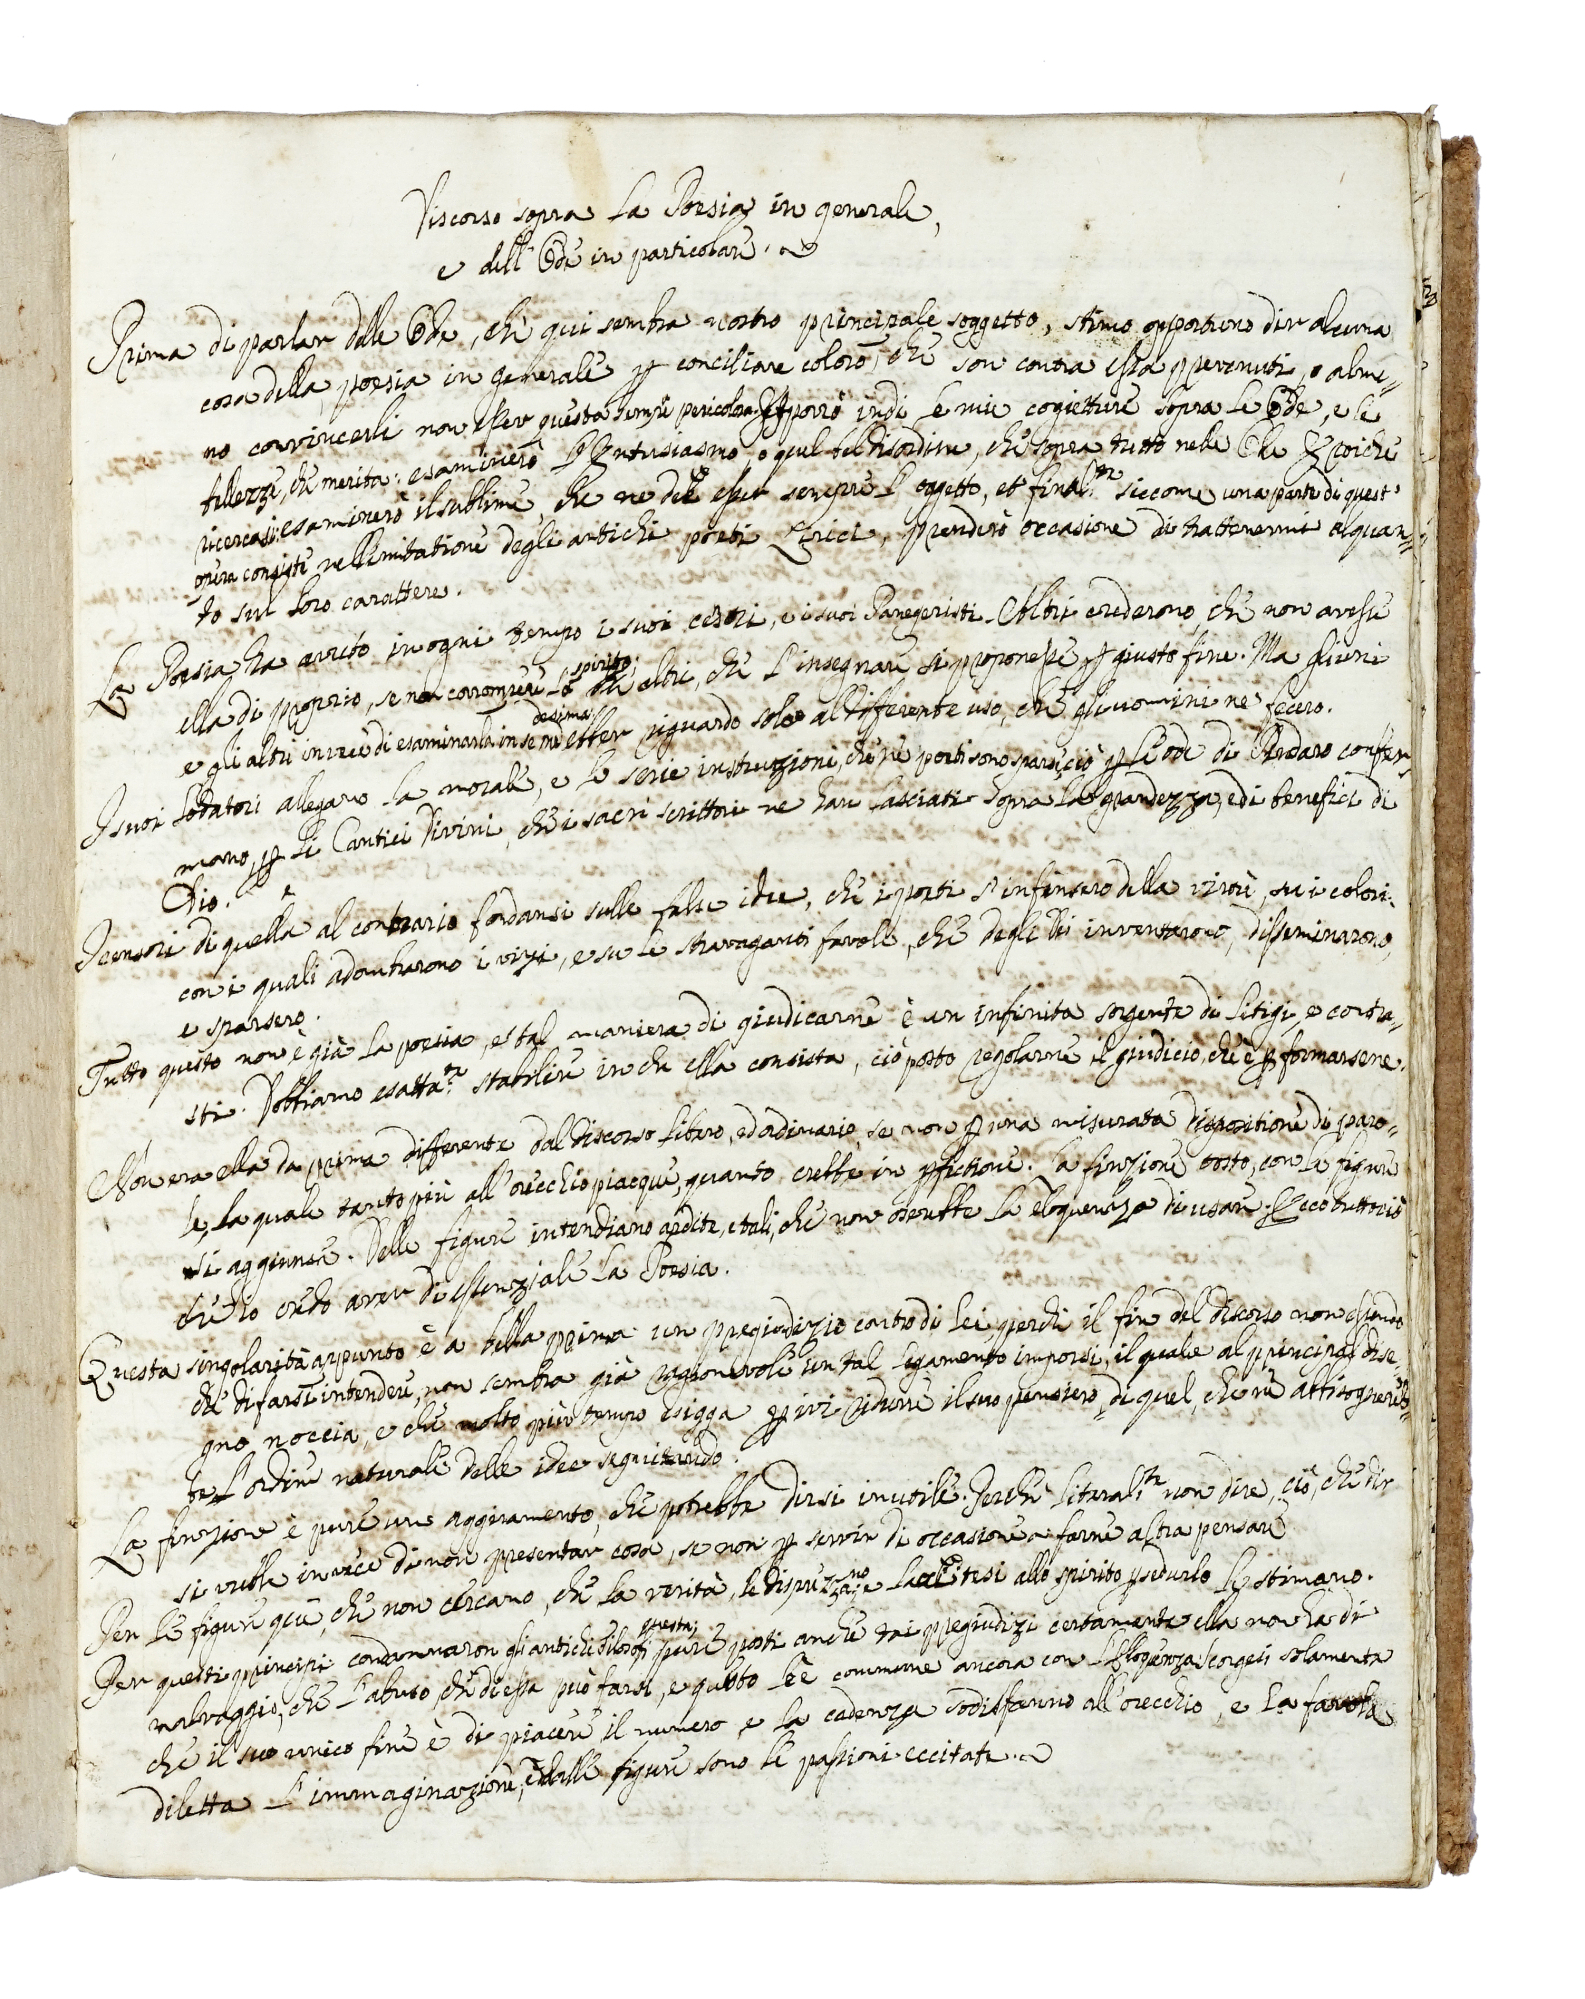 Discorso sopra la Poesia in generale,
e dell'Ode in particolare.
Prima di parlar delle Ode, che qui sembra nostro principale soggetto, stimo opportuno dir alcuna
cosa della poesia in generale p conciliare coloro, che son contra essa pprevenuti, o alme=
no convincerli non esser questa sempre pericolosa. Esporrò indi le mie cogietture sopra le Ode, e le
bellezze, che merita: esaminerò l'Entusiasmo, o quel bel disordine, che sopra tutto nelle Ode
ricercasi: esaminerò il sublime, che ne deè esser sempre l'oggetto, et final.te siccome una parte di quest'
opera consiste nell'imitatione degli antichi poeti Lirici, prenderò occasione di trattenermi alquan=
to sul loro carattere.
La Poesia ha avuto in ogni tempo i suoi censori, e i suoi Panegeristi. Altri crederono, che non avesse
ella di proprio, se non corrompere lo spirito; altri, che l'insegnare si proponesse p giusto fine. Ma gliuni
e gli altri invece di esaminarla in se medesima ebber riguardo solo al differente uso, che gli uomini ne fecero.
I suoi lodatori allegano la morale, e le serie instruzioni, che ne poeti sono sparse, ciò p le ode di Pindaro confer=
mano, p li Cantici Divini, che i sacri scrittori ne han lasciati sopra la grandezza, e di benefici di
Dio.
I censori di quella al contrario fondansi sulle false idee, che i poeti s'infinsero della virtù, su i colori,
con i quali adombrarono i vizi, e su le stravaganti favole, che degli Dii inventarono, disseminarono,
e sparsero.
Tutto questo non è già la poesia, e tal maniera di giudicarne è un infinita sorgente di litigi, e contra=
sti. Dobbiamo esatta.te stabilire in che ella consista, ciò posto regolarne il giudicio, che è p formarsene.
Non era ella da prima differente dal discorso libero, ed ordinario, se non p una misurata dispositione di paro=
le, la quale tanto più all'orecchio piacque, quanto crebbe in pfictione. La finzione tosto, con le figure
si aggiunse. Delle figure intendiano ardite, e tali, che non oserebbe la eloquenza di usare. Ecco tutto ciò
che io credo aver di essenziale la Poesia.
Questa singolarità appunto è a bella pprima un ppregiudizio contro di lei, perche il fin del discorso non essendo
che di farsi intendere, non sembra già ragionevole un tal legamento imporsi, il quale al pprincipal dise=
gno noccia, e che molto più tempo esigga p ivi ridurre il suo pensiero, di quel, che ne abbisognereb=
be l'ordine naturale delle idee seguitando.
La finzione è pure un aggiramento, che potrebbe dirsi inutile. Perche literal.te non dire, ciò, che dir
si vuole invece di non ppresentar cosa, se non p servir di occasione a farne altra pensare
Per le figure que, che non cercano, che la verità, le disprezzano e lacci tesi allo spirito p sedurlo le stimano.
Per questi pprincipi condannaron gli antichi filosofi questa; pure posti anche tai ppregiudizi certamente ella non ha di
malvaggio, che l'abuso che di essa può farsi, e questo le è commune ancora con l'Eloquenza. Scorgesi solamente
che il suo unico fine è di piacere il numero, e la cadenza sodisfanno all'orecchio, e la favola
diletta l'immaginazione, e dalle figure sono le passioni eccitate.